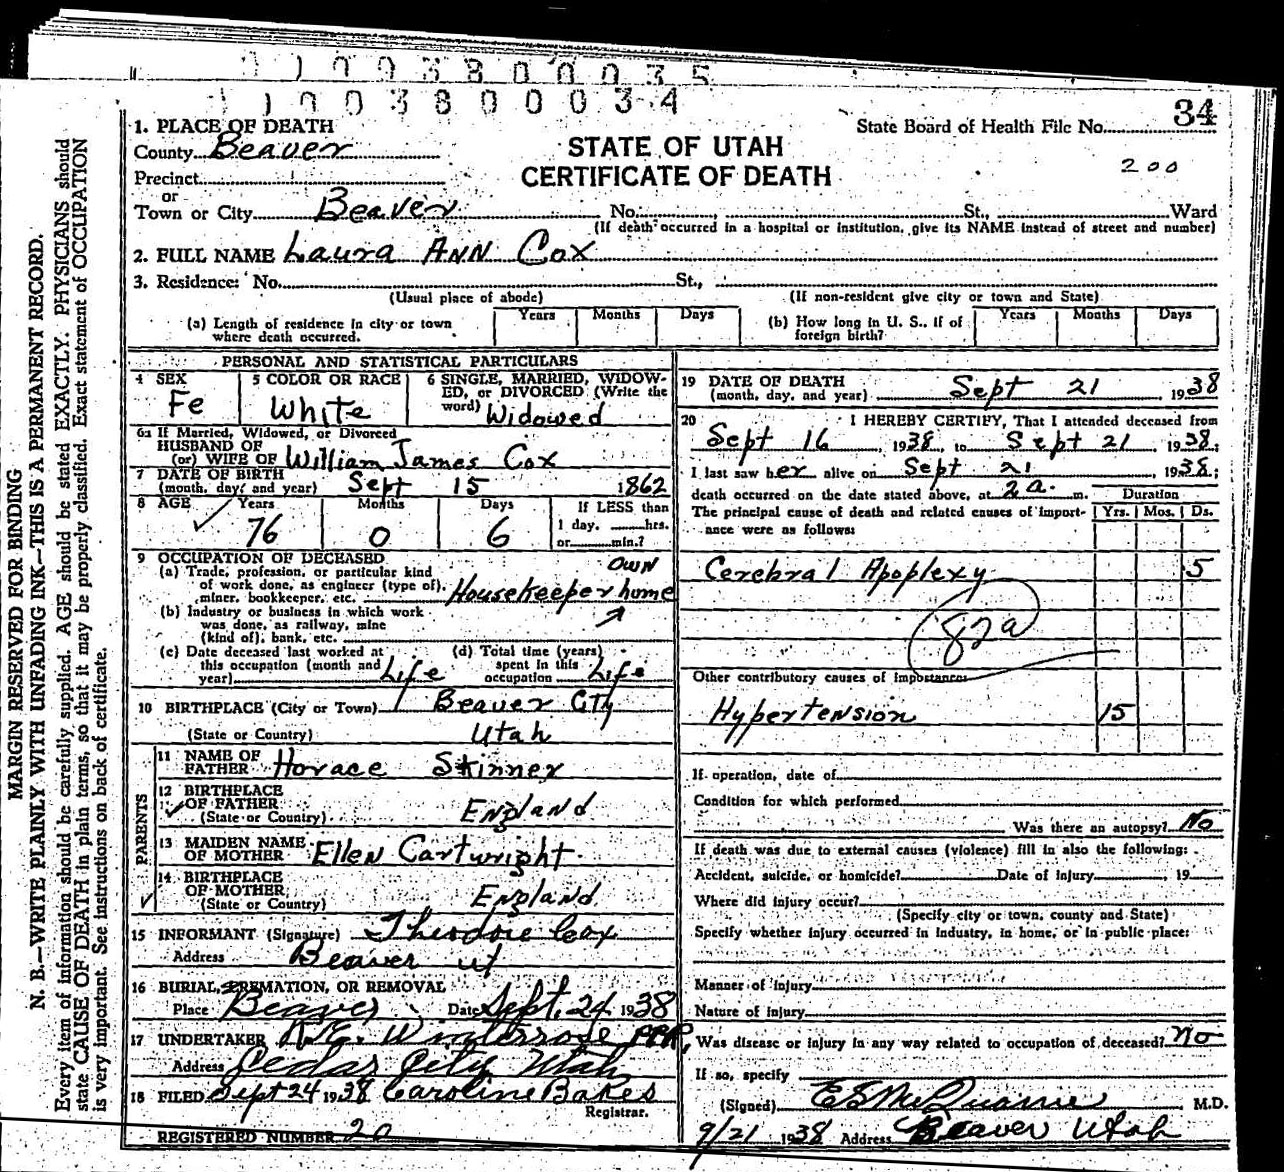 1 0 0 3 8 0 0 0 3 5
1 0 0 3 8 0 0 0 3 4
34
State Board of Health File No.
200
STATE OF UTAH
CERTIFICATE OF DEATH
1. PLACE OF DEATH
County Beaver
Precinct
or
Town or City Beaver No. , St., Ward
(If death occurred in a hospital or institution, give its NAME instead of street and number)
2. FULL NAME Laura Ann Cox
3. Residence: No. St.,
(Usual place of abode) (If non-resident give city or town and State)
(a) Length of residence in city or town where death occurred. Years Months Days (b) How long in U. S., if of foreign birth? Years Months Days
PERSONAL AND STATISTICAL PARTICULARS
4 SEX Fe
5 COLOR OR RACE White
6 SINGLE, MARRIED, WIDOW-
ED, or DIVORCED (Write the
word) Widowed
6a If Married, Widowed, or Divorced
HUSBAND OF
(or) WIFE OF William James Cox
7 DATE OF BIRTH
(month, day, and year) Sept 15 1862
8 AGE Years Months Days If LESS than
76 0 6 1 day, hrs.
or min.?
9 OCCUPATION OF DECEASED
(a) Trade, profession, or particular kind
of work done, as engineer (type of),
miner, bookkeeper, etc. Housekeeper own home
(b) Industry or business in which work
was done, as railway, mine
(kind of), bank, etc.
(c) Date deceased last worked at
this occupation (month and
year) Life
(d) Total time (years)
spent in this
occupation Life
10 BIRTHPLACE (City or Town) Beaver City
(State or Country) Utah
PARENTS
11 NAME OF
FATHER Horace Skinner
12 BIRTHPLACE
OF FATHER
(State or Country) England
13 MAIDEN NAME
OF MOTHER Ellen Cartwright
14 BIRTHPLACE
OF MOTHER
(State or Country) England
15 INFORMANT (Signature) Theodore Cox
Address Beaver Ut
16 BURIAL, CREMATION, OR REMOVAL
Place Beaver Date Sept. 24 1938
17 UNDERTAKER Winterrose
Address Cedar City Utah
18 FILED Sept 24 1938 Caroline Bakes
Registrar.
REGISTERED NUMBER 20
19 DATE OF DEATH
(month, day, and year) Sept 21 1938
20 I HEREBY CERTIFY, That I attended deceased from
Sept 16, 1938, to Sept 21 1938;
I last saw her alive on Sept 21 1938;
death occurred on the date stated above, at 2 a. m.
Duration
The principal cause of death and related causes of import-
ance were as follows:
Yrs. Mos. Ds.
Cerebral Apoplexy 5
82a
Other contributory causes of importance:
Hypertension 15
If operation, date of
Condition for which performed
Was there an autopsy? No
If death was due to external causes (violence) fill in also the following:
Accident, suicide, or homicide? Date of injury , 19
Where did injury occur?
(Specify city or town, county and State)
Specify whether injury occurred in industry, in home, or in public place:
Manner of injury
Nature of injury
Was disease or injury in any way related to occupation of deceased? No
If so, specify
(Signed) M.D.
9/21 1938 Address Beaver Utah
MARGIN RESERVED FOR BINDING
N. B.—WRITE PLAINLY WITH UNFADING INK—THIS IS A PERMANENT RECORD.
Every item of information should be carefully supplied. AGE should be stated EXACTLY. PHYSICIANS should
state CAUSE OF DEATH in plain terms, so that it may be properly classified. Exact statement of OCCUPATION
is very important. See instructions on back of certificate.